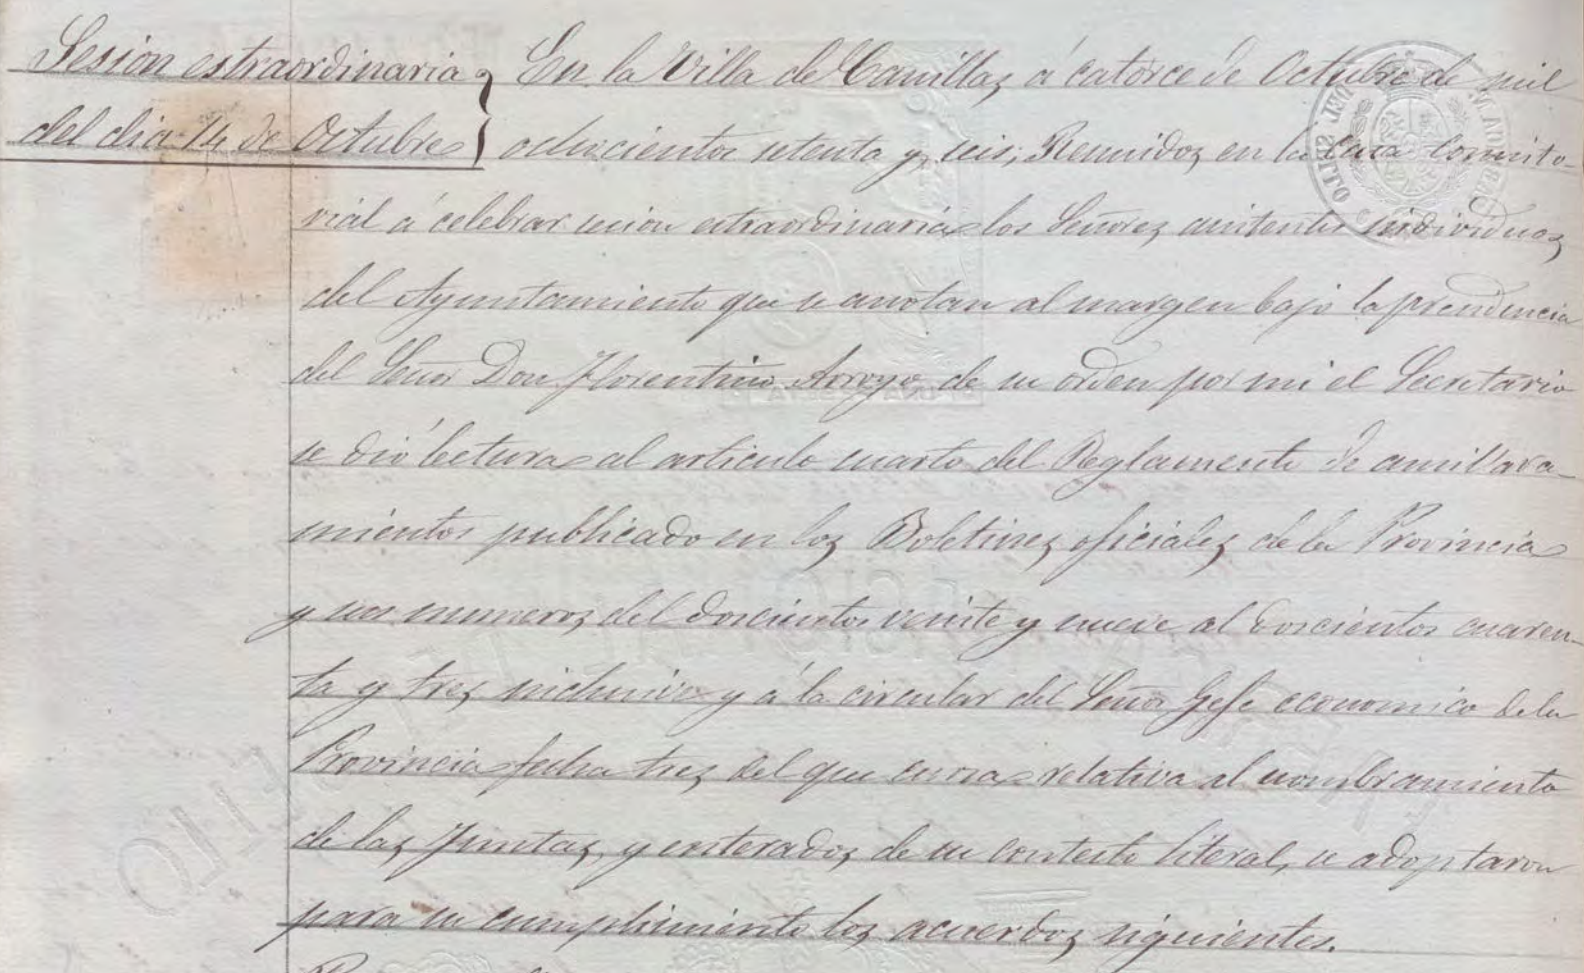 Sesion estraordinaria
del dia 14 de Octubre
En la Villa de Canillas, á catorce de Octubre de mil
ochocientos setenta y seis, Reunidos en la Casa Consisto-
rial á celebrar sesion estraordinaria los Señores asistentes individuos
del Ayuntamiento que se anotan al margen bajo la presidencia
del Señor Don Florentino Arroyo de su orden por mi el Secretario
se dió lectura al articulo cuarto del Reglamento de amillara-
mientos publicado en los Boletines oficiales de la Provincia
y sus numeros del doscientos veinte y nueve al doscientos cuaren-
ta y tres inclusive y á la circular del Señor Gefe economico de la
Provincia fecha tres del que cursa relativa al nombramiento
de las Juntas, y enterados de su contesto literal, se adoptaron
para su cumplimiento los acuerdos siguientes.